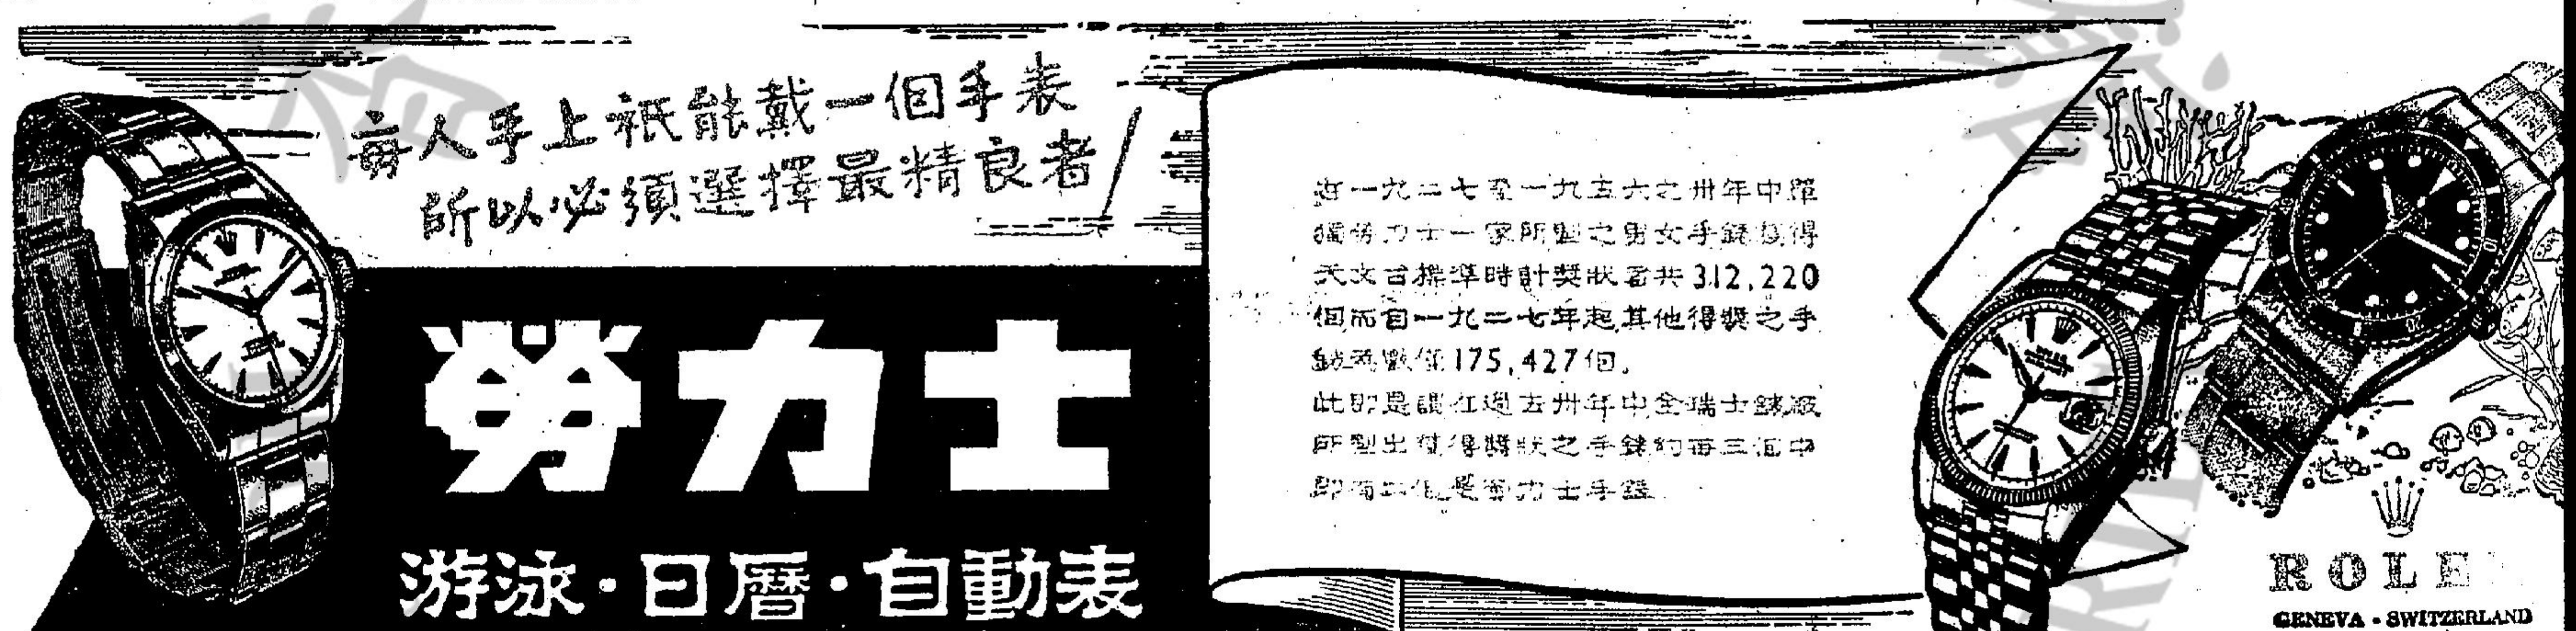 每人手上祇能戴一個手表
所以必須選擇最精良者！
勞力士
游泳·日曆·自動表
在一九二七至一九五六之卅年中單
獨勞力士一家所製之男女手錶獲得
天文台標準時計獎狀者共312,220
個而自一九二七年起其他得獎之手
錶總數僅175,427個.
此即是說在過去卅年中全瑞士錶廠
所製出獲得獎狀之手錶約每三個中
即有二個是勞力士手錶
ROLE
GENEVA · SWITZERLAND